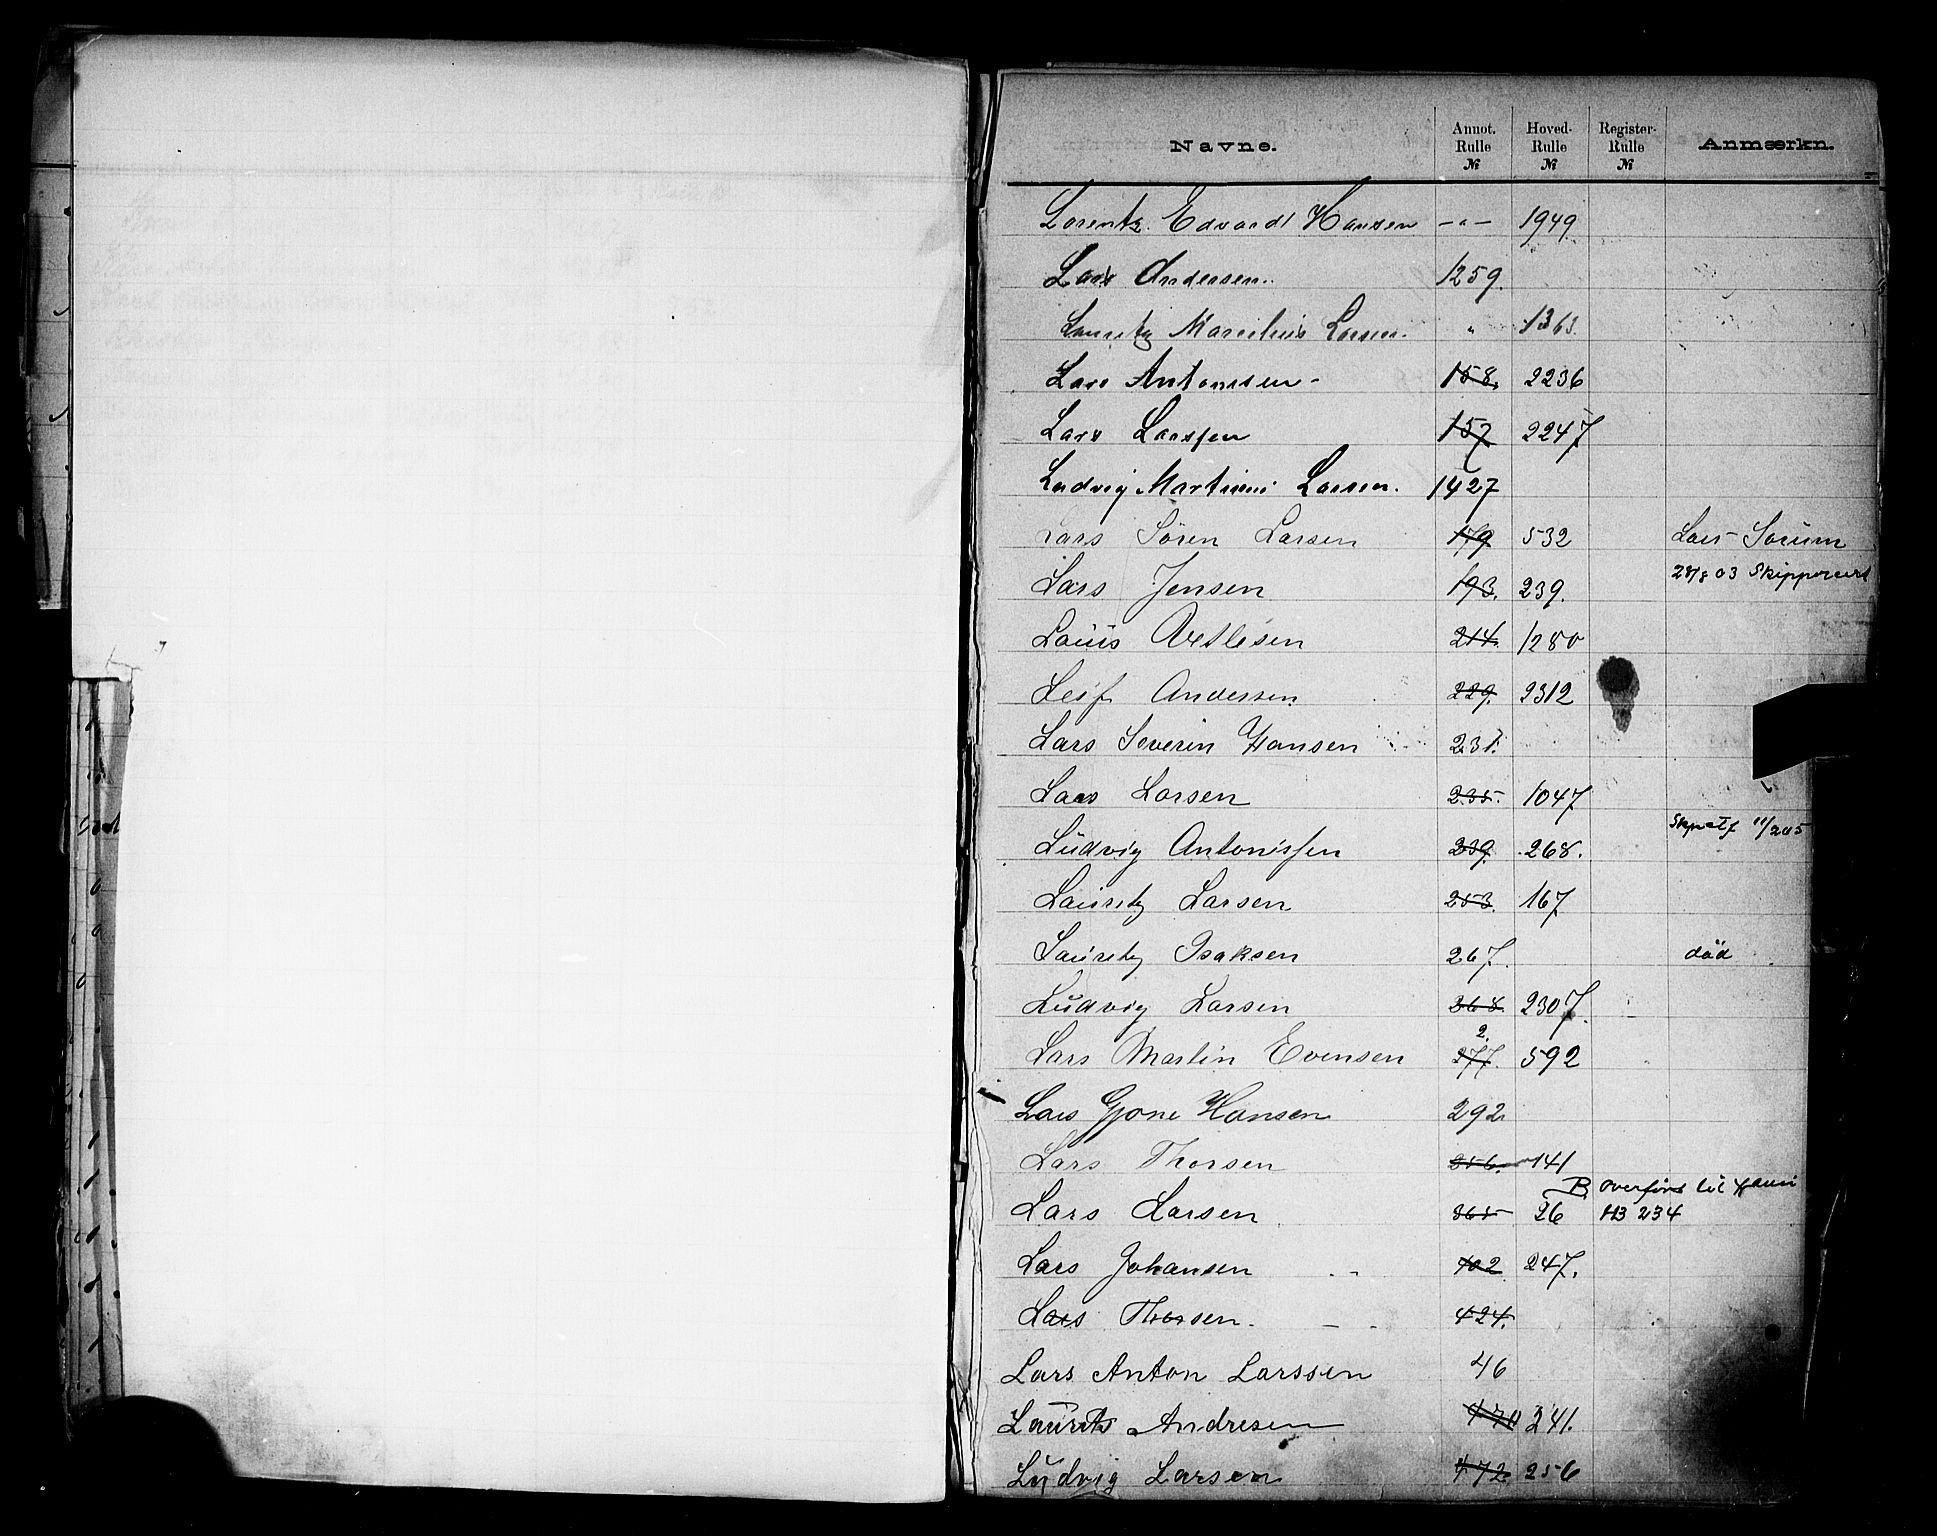 Navne. Annot. Rulle № Hoved- Rulle № Register- Rulle № Anmærkn.
Lorentz Edvardt Hansen -"- 1949
Lars Andersen. 1259.
Lauritz Marelius Larsen. " 1363
Lars Antonssen - 158. 2236
Lars Larssen 157 2247
Ludvig Martinius Larsen. 1427
Lars Sören Larsen 179 532 Lars Sörum
Lars Jensen 193. 239. 28/8 03 Skippercert
Louis Axelsen 214. 1280
Leif Andersen 229. 2312
Lars Severin Hansen 231.
Lars Larsen 235. 1047
Ludvig Antonissen 239. 268. 11/2 05
Lauritz Larsen 253. 167
Lauritz Isaksen 267. död
Ludvig Larsen 268. 2307.
Lars Martin Evensen 277. 592
Lars Gjone Hansen 292
Lars Thorsen 356. 141
Lars Larsen 365 B 26 overført til
H3 234
Lars Johansen 402 247.
Lars Thorsen. 424.
Lars Anton Larssen 46
Laurits Andresen 470 241.
Ludvig Larsen 472 256